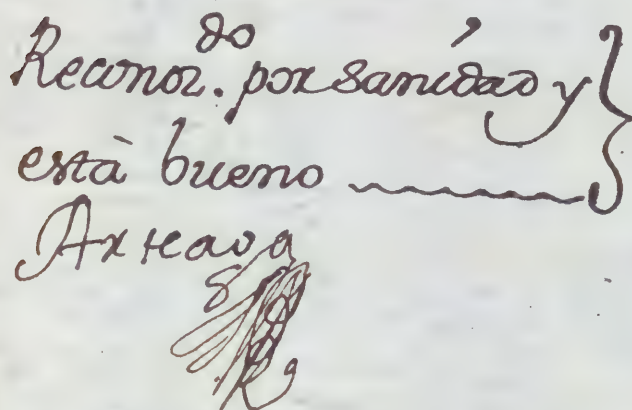 Reconoz.do por sanidad y
està bueno
Arteaga